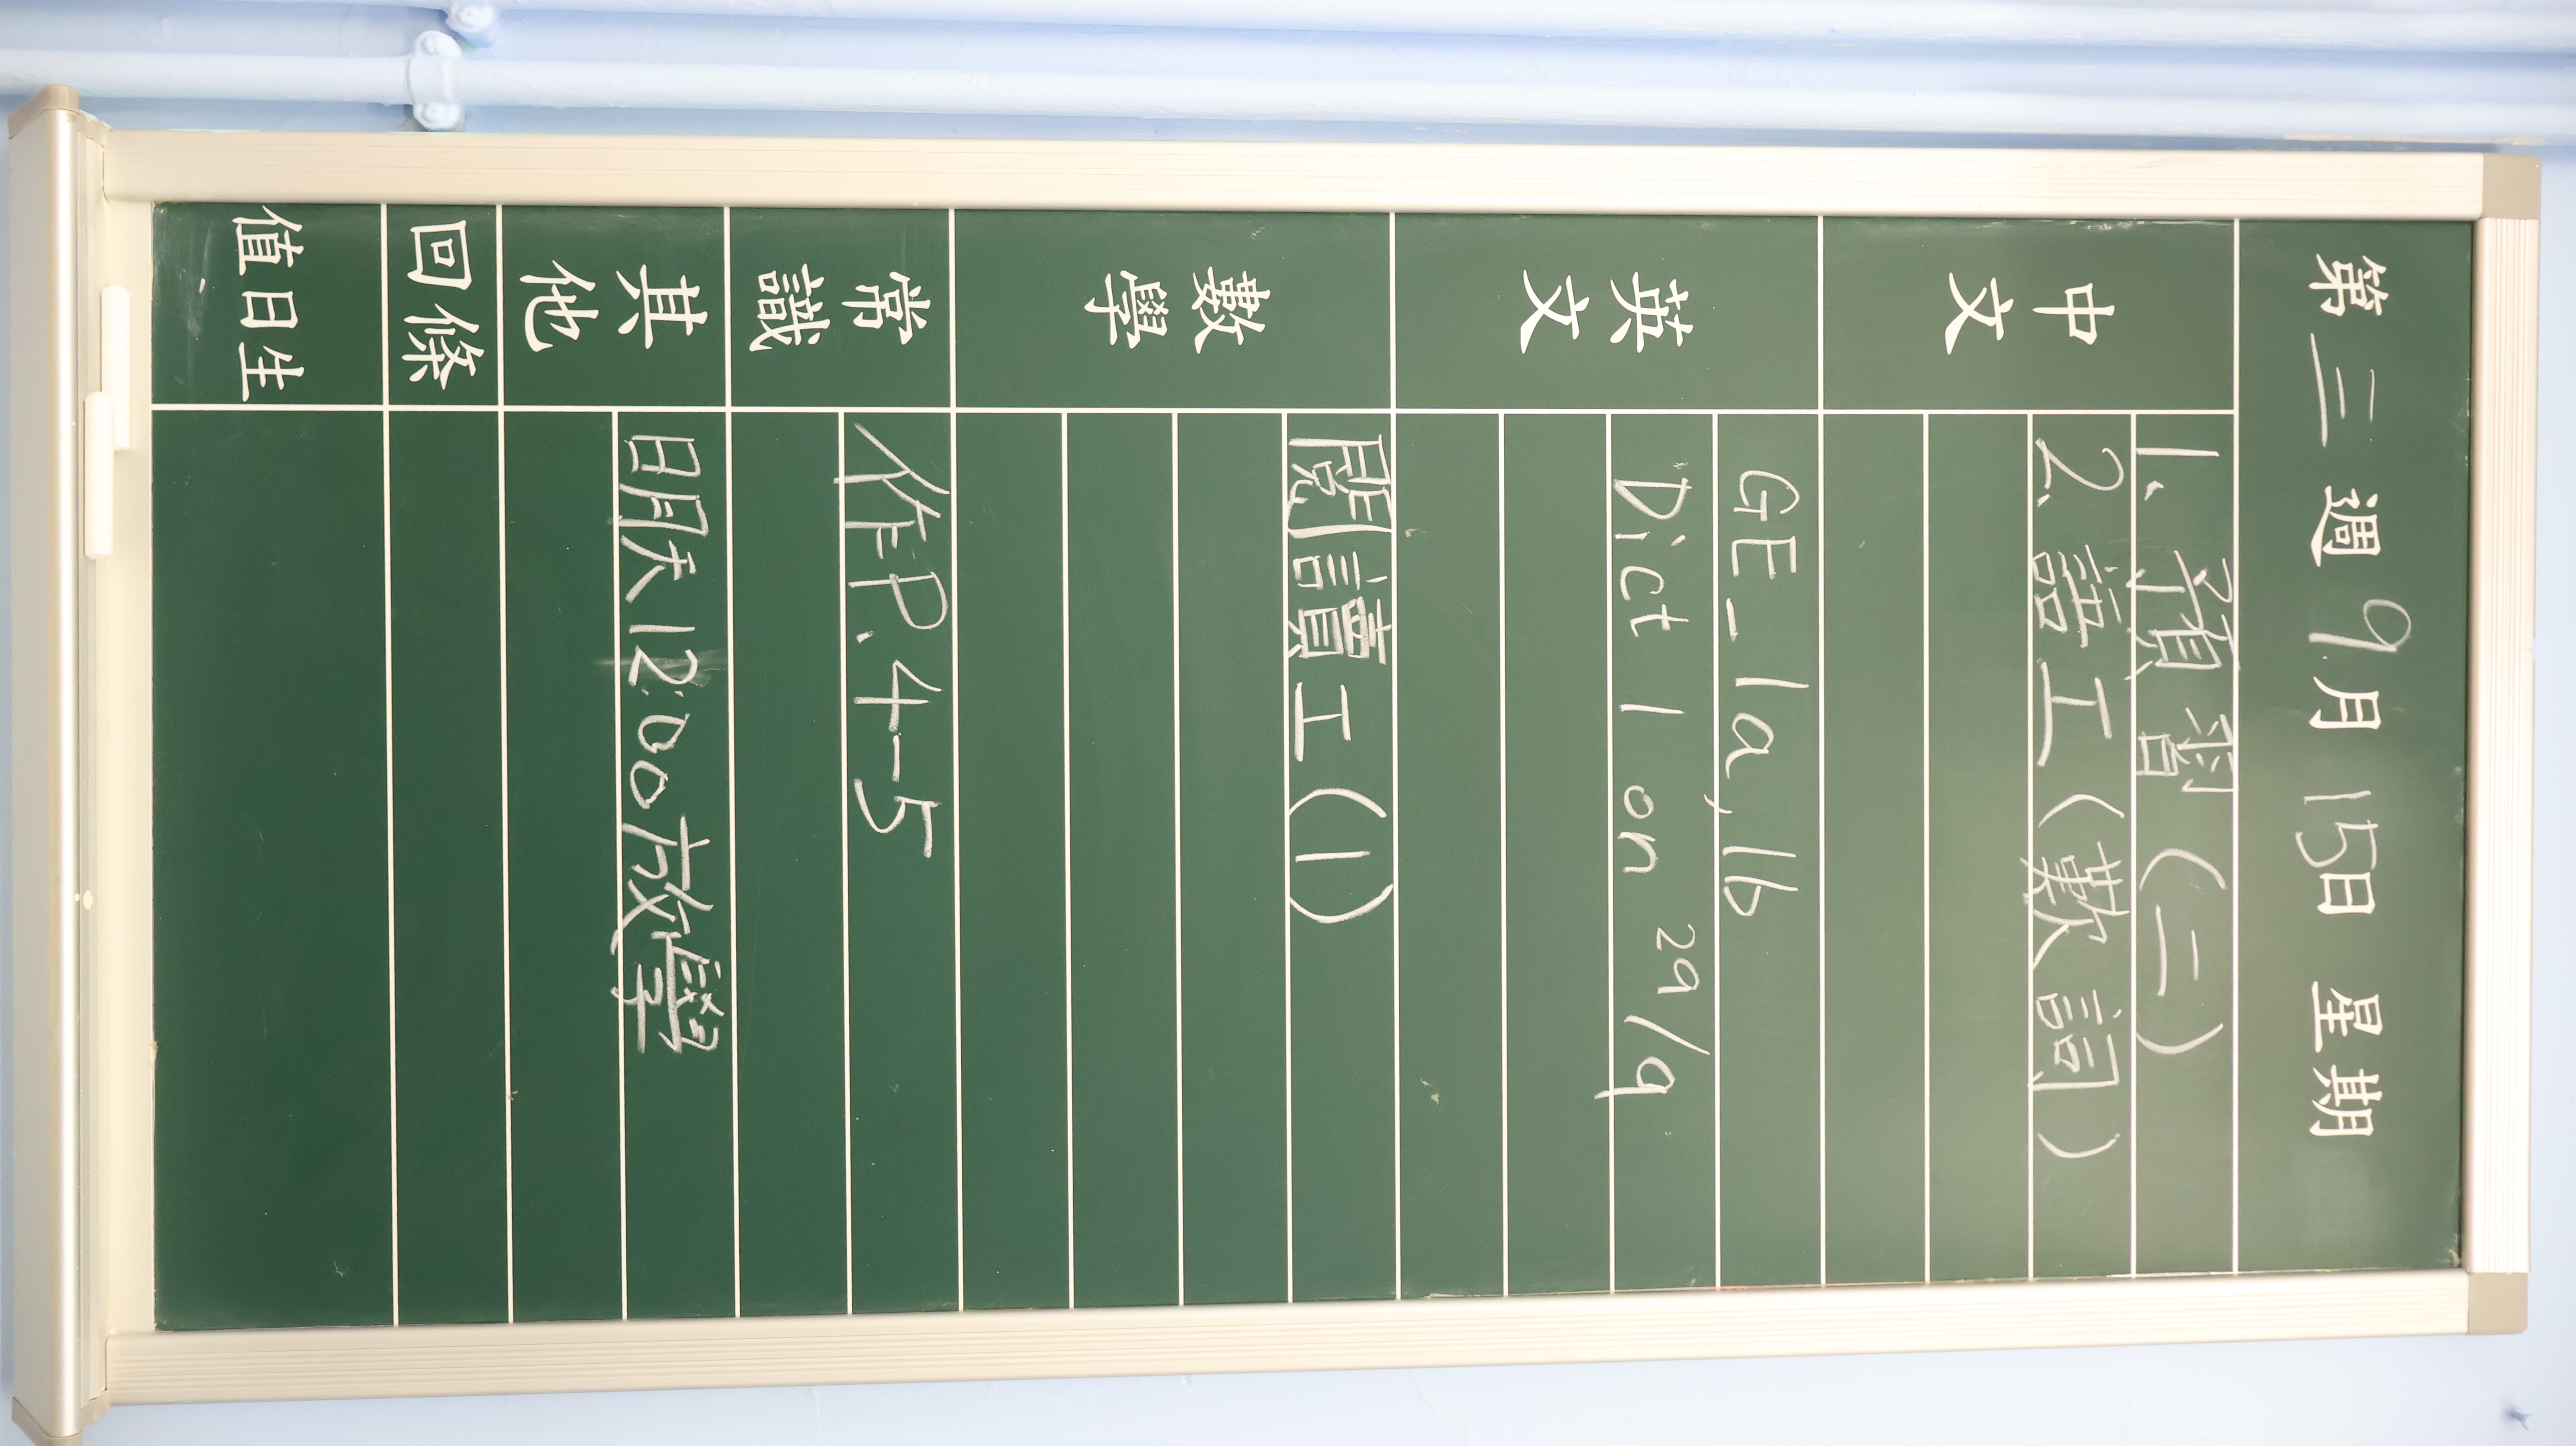 第三週 9月15日 星期
中文 1. 預習(二)
2. 語工(數詞)
英文 GE_1a, 1b
Dict 1 on 29/9
數學 閱讀工(1)
常識 作P.4-5
其他 明天12:00放學
回條
值日生